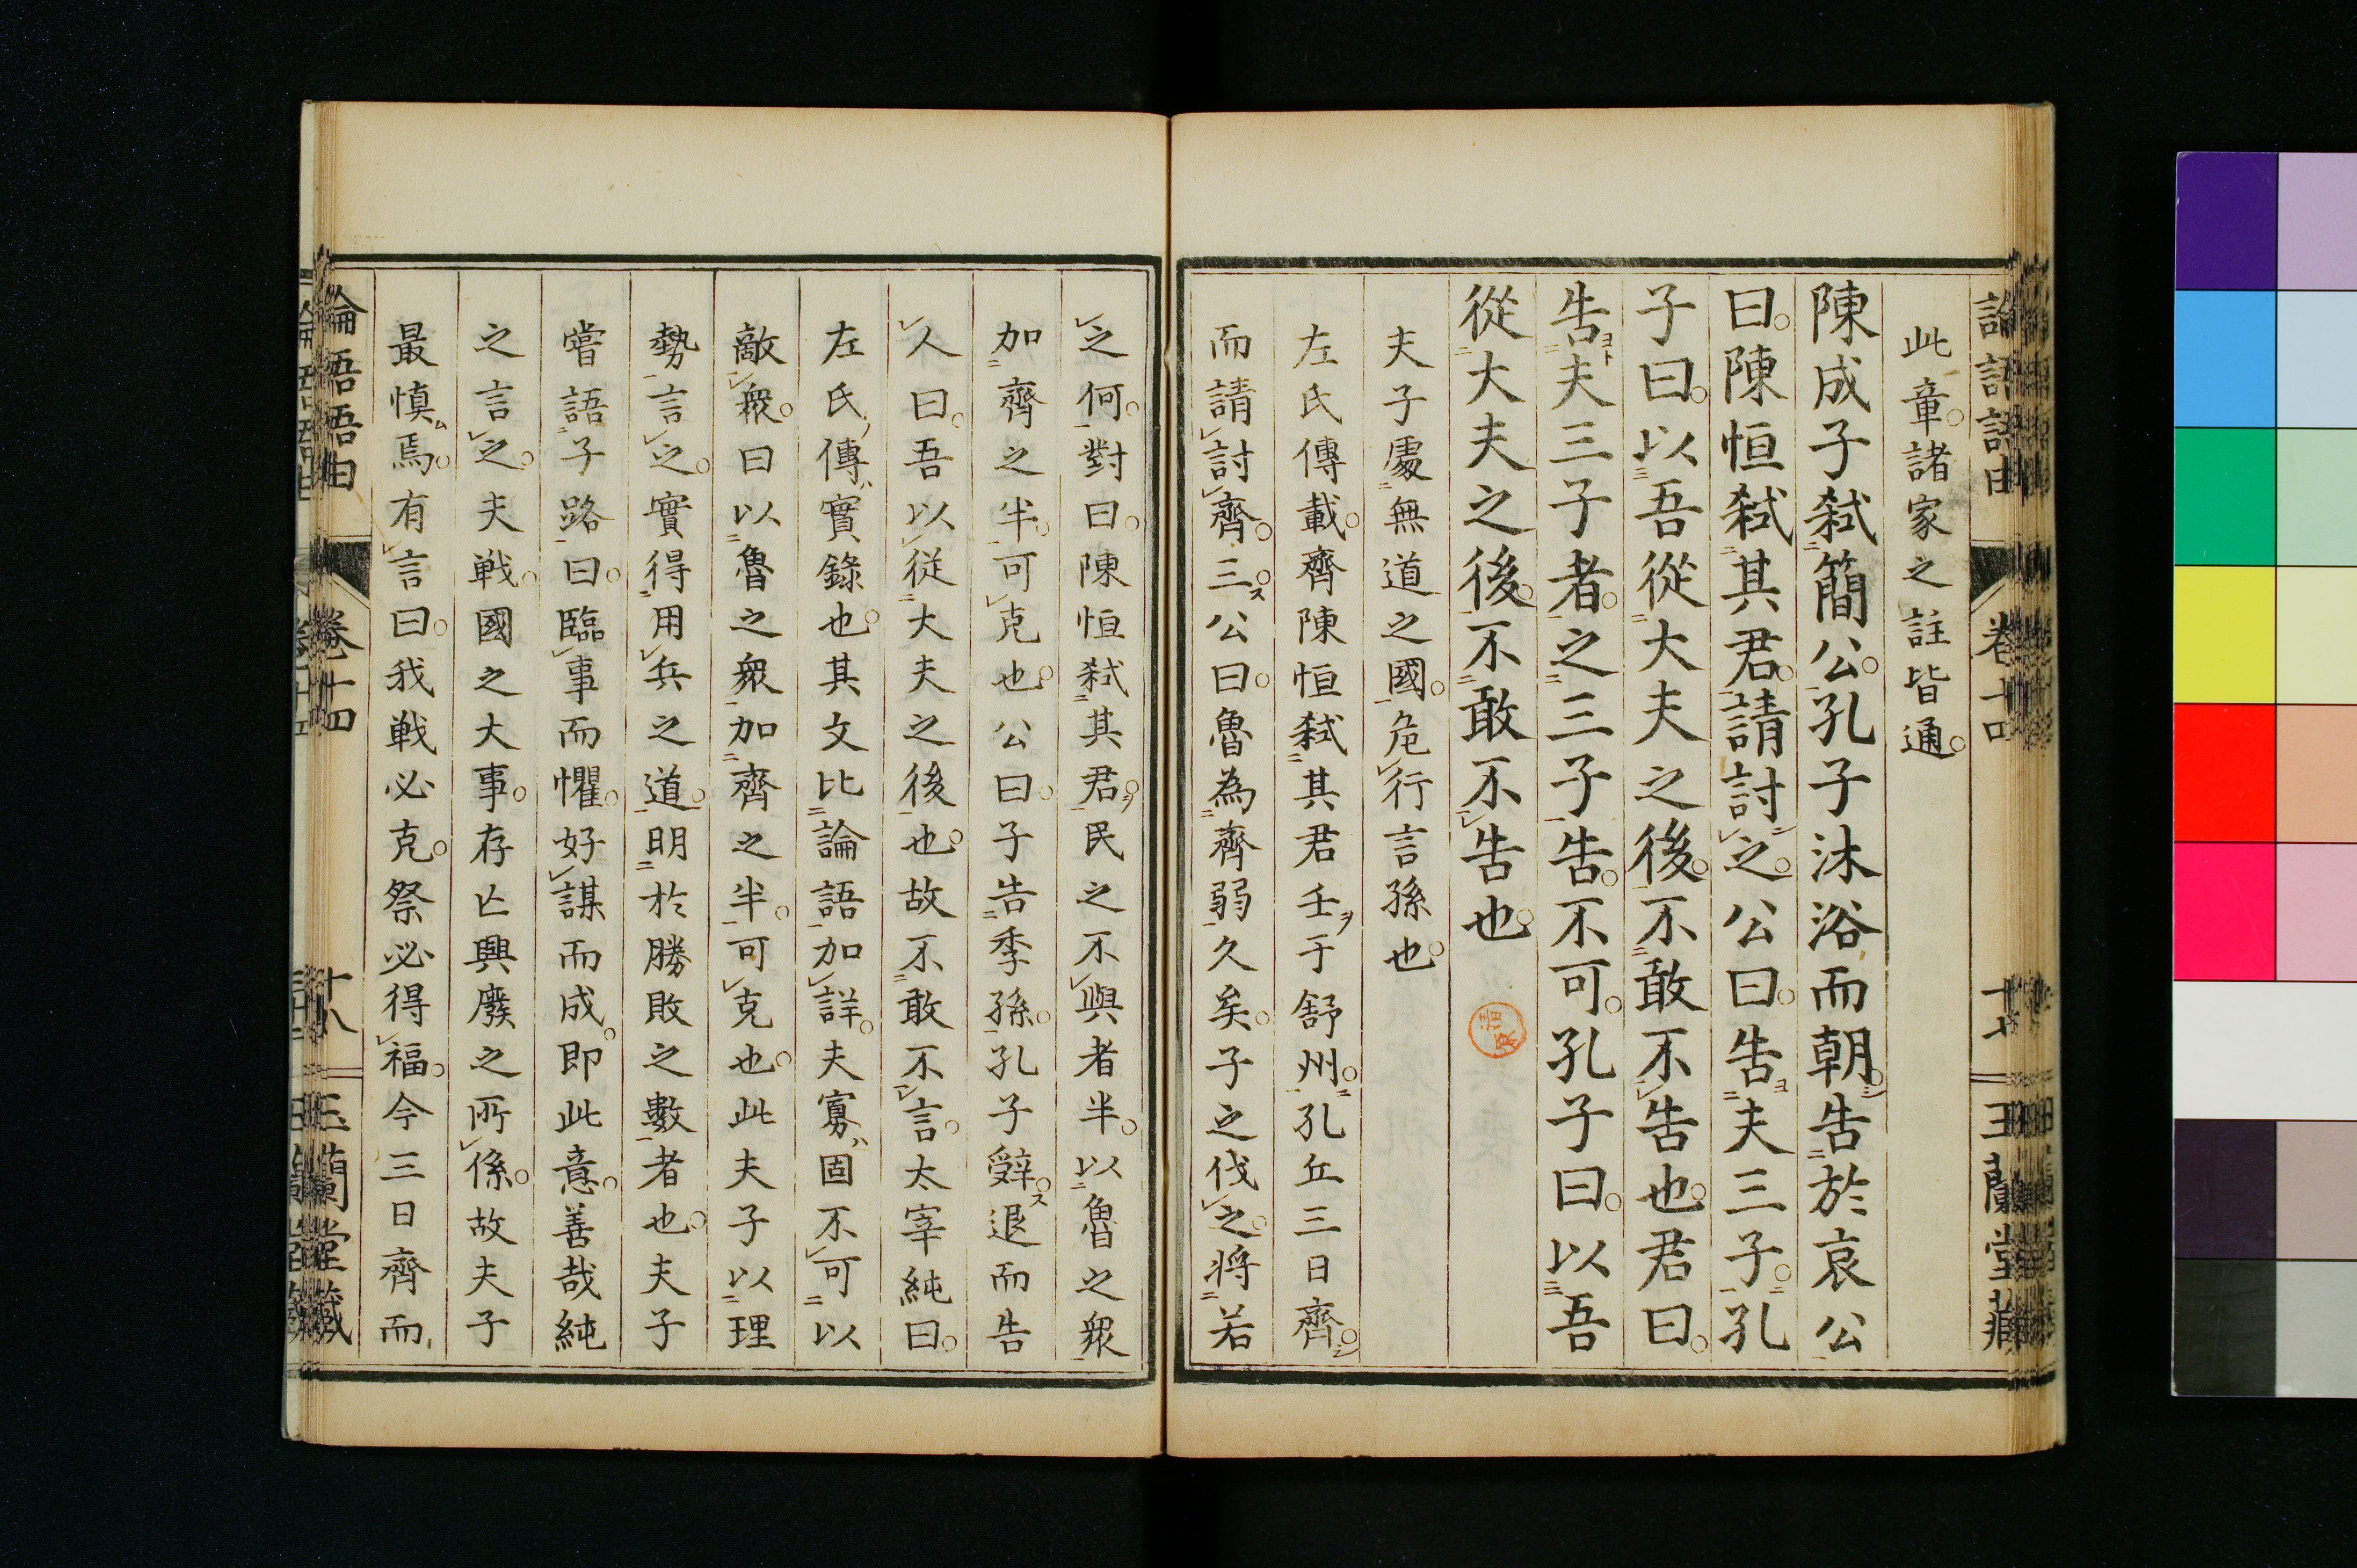 論語語由 卷十四 十七 玉蘭堂藏
此章諸家之註皆通
陳成子弑簡公孔子沐浴而朝告於哀公
曰陳恒弑其君請討之公曰告夫三子孔
子曰以吾從大夫之後不敢不告也君曰
告夫三子者之三子告不可孔子曰以吾
從大夫之後不敢不告也
夫子處無道之國危行言孫也
左氏傳載齊陳恒弑其君壬于舒州孔丘三日齊
而請討齊三公曰魯為齊弱久矣子之伐之将若
之何對曰陳恒弑其君民之不與者半以魯之衆
加齊之半可克也公曰子告季孫孔子辭退而告
人曰吾以從大夫之後也故不敢不言太宰純曰
左氏傳實錄也其文比論語加詳夫寡固不可以
敵衆曰以魯之衆加齊之半可克也此夫子以理
勢言之實得用兵之道明於勝敗之數者也夫子
嘗語子路曰臨事而懼好謀而成即此意善哉純
之言之夫戦國之大事存亡興廢之所係故夫子
最慎焉有言曰我戦必克祭必得福今三日齊而
論語語由 卷十四 十八 玉蘭堂藏